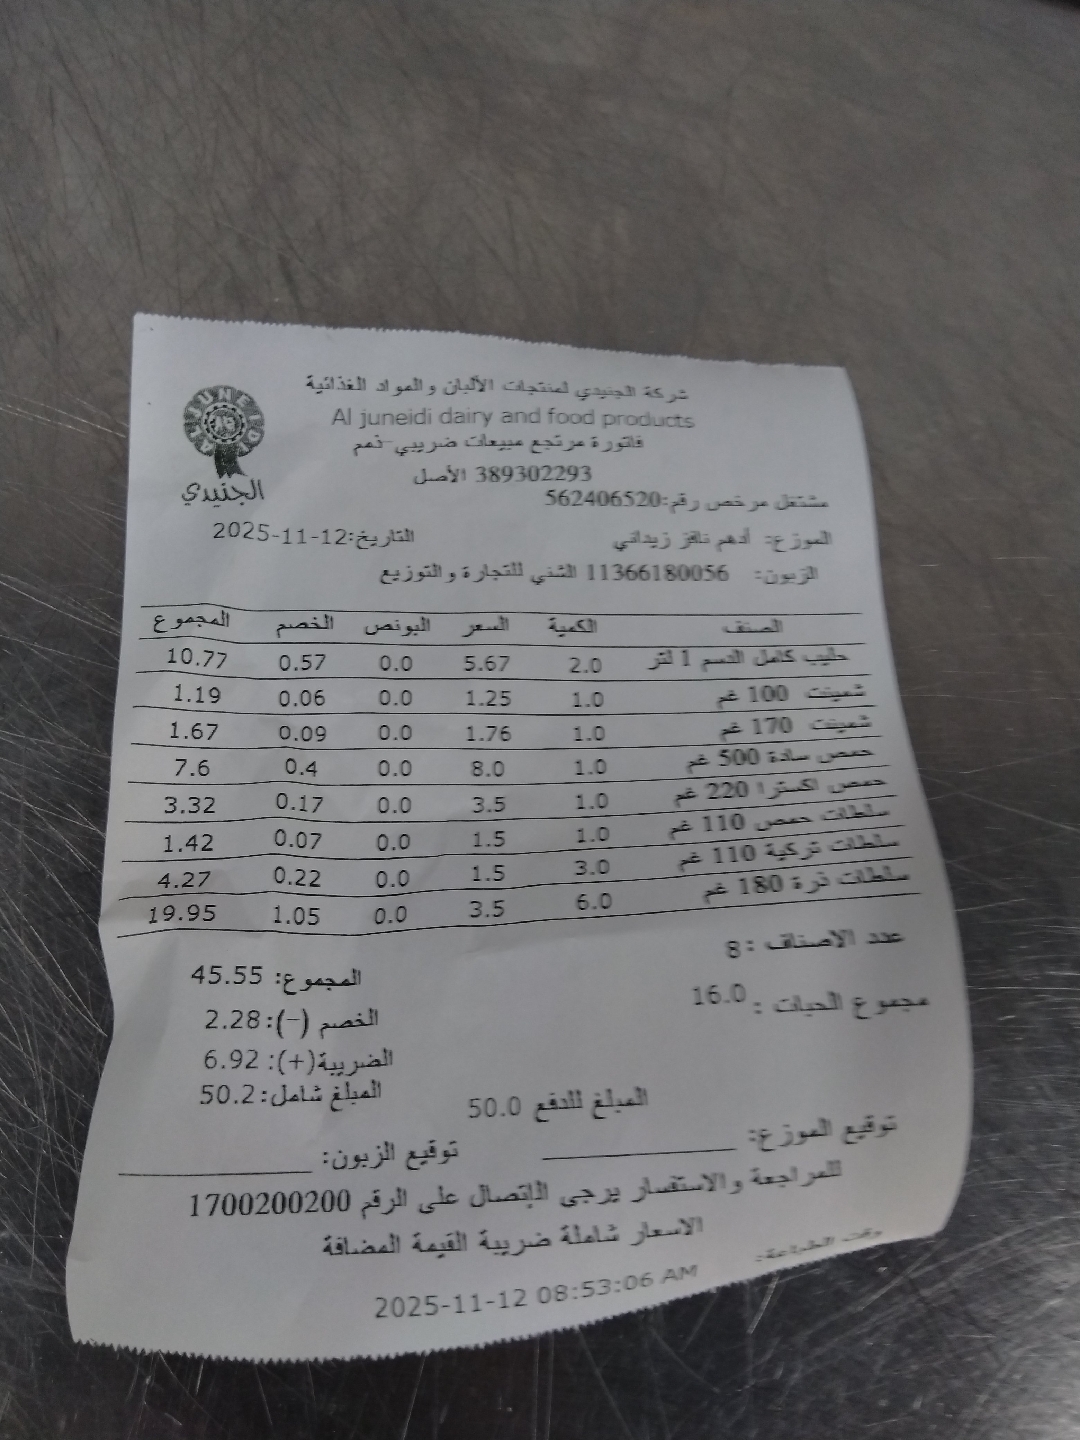 شركة الجنيدي لمنتجات الألبان والمواد الغذائية
Al juneidi dairy and food products
فاتورة مرتجع مبيعات ضريبي-ذمم
389302293 الأصل
AL JUNEIDI
الجنيدي
مشتغل مرخص رقم:562406520
الموزع: أدهم نافز زيداني التاريخ:2025-11-12
الزبون: 11366180056 الشني للتجارة والتوزيع
الصنف الكمية السعر البونص الخصم المجموع
حليب كامل الدسم 1 لتر 2.0 5.67 0.0 0.57 10.77
شمينت 100 غم 1.0 1.25 0.0 0.06 1.19
شمينت 170 غم 1.0 1.76 0.0 0.09 1.67
حمص سادة 500 غم 1.0 8.0 0.0 0.4 7.6
حمص اكسترا 220 غم 1.0 3.5 0.0 0.17 3.32
سلطات حمص 110 غم 1.0 1.5 0.0 0.07 1.42
سلطات تركية 110 غم 3.0 1.5 0.0 0.22 4.27
سلطات ذرة 180 غم 6.0 3.5 0.0 1.05 19.95
عدد الاصناف :8
المجموع: 45.55
مجموع الحبات : 16.0
الخصم (-): 2.28
الضريبة(+): 6.92
المبلغ شامل: 50.2
المبلغ للدفع 50.0
توقيع الموزع: ____________ توقيع الزبون: ____________
للمراجعة والاستفسار يرجى الإتصال على الرقم 1700200200
الاسعار شاملة ضريبة القيمة المضافة
وقت الطباعة:
2025-11-12 08:53:06 AM